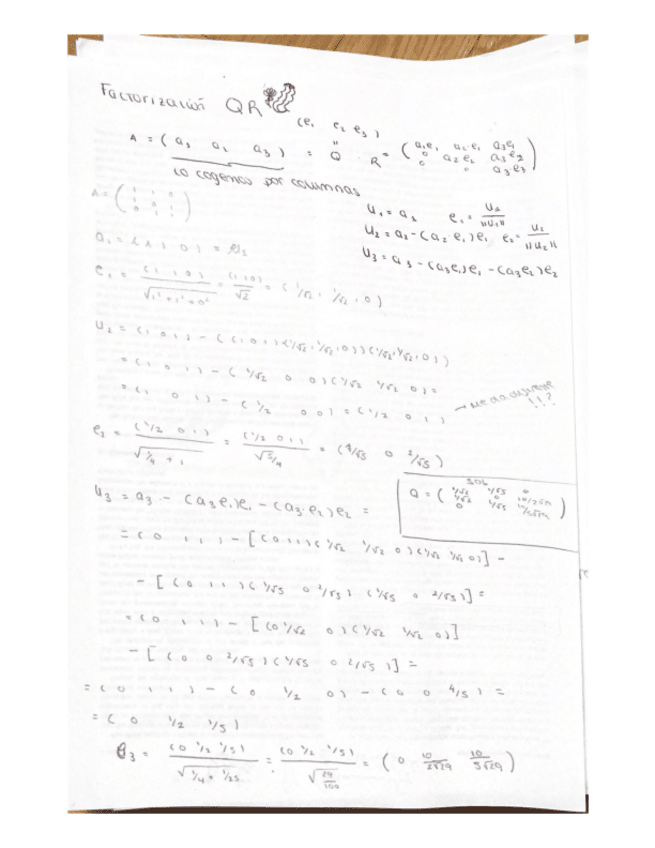 Factorización QR
(e₁ e₂ e₃)
A = (a₁ a₂ a₃) = Q R = (a₁e₁ a₂·e₁ a₃e₁
0 a₂e₂ a₃e₂
0 0 a₃e₃)
lo cogemos por columnas
A = (1 1 0
1 0 1
0 1 1)
u₁ = a₁ e₁ = u₁/||u₁||
u₂ = a₂ - (a₂·e₁)e₁ e₂ = u₂/||u₂||
u₃ = a₃ - (a₃e₁)e₁ - (a₃e₂)e₂
a₁ = (1 1 0) = u₁
e₁ = (1 1 0)/√(1²+1²+0²) = (1 1 0)/√2 = (1/√2, 1/√2, 0)
u₂ = (1 0 1) - ((1 0 1)(1/√2, 1/√2, 0))(1/√2, 1/√2, 0)
= (1 0 1) - (1/√2 0 0)(1/√2 1/√2 0) =
= (1 0 1) - (1/2 0 0) = (1/2 0 1) →
!!?
e₂ = (1/2 0 1)/√(1/4 + 1) = (1/2 0 1)/√(5/4) = (1/√5 0 2/√5)
SOL
Q = (1/√2 1/√5 0
1/√2 0 10/2√29
0 2/√5 10/5√29)
u₃ = a₃ - (a₃e₁)e₁ - (a₃·e₂)e₂ =
= (0 1 1) - [(0 1 1)(1/√2 1/√2 0)(1/√2 1/√2 0)] -
- [(0 1 1)(1/√5 0 2/√5)(1/√5 0 2/√5)] =
= (0 1 1) - [(0 1/√2 0)(1/√2 1/√2 0)]
- [(0 0 2/√5)(1/√5 0 2/√5)] =
= (0 1 1) - (0 1/2 0) - (0 0 4/5) =
= (0 1/2 1/5)
e₃ = (0 1/2 1/5)/√(1/4 + 1/25) = (0 1/2 1/5)/√(29/100) = (0 10/2√29 10/5√29)